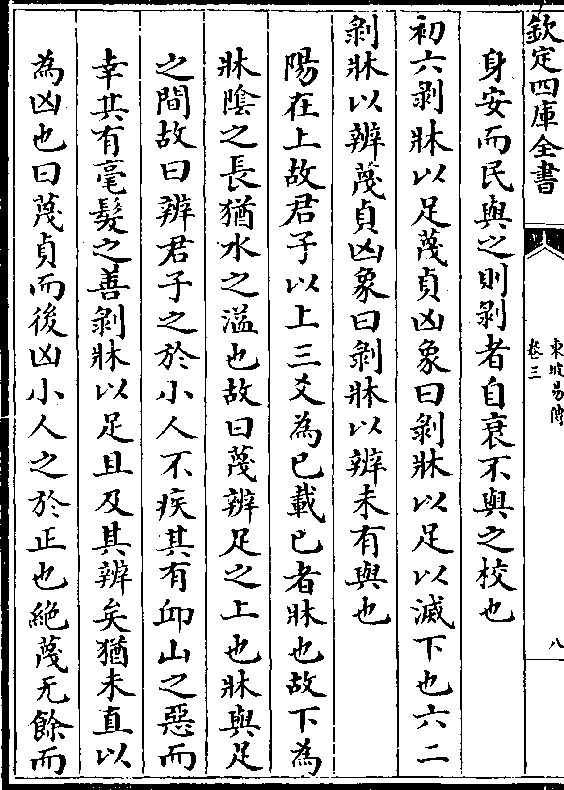 欽定四庫全書
東坡易傳
卷三
八
身安而民與之則剥者自衰不與之校也
初六剥牀以足蔑貞凶象曰剥牀以足以滅下也六二
剥牀以辨蔑貞凶象曰剥牀以辨未有與也
陽在上故君子以上三爻為已載已者牀也故下為
牀陰之長猶水之溢也故曰蔑辨足之上也牀與足
之間故曰辨君子之於小人不疾其有邱山之惡而
幸其有毫髮之善剥牀以足且及其辨矣猶未直以
為凶也曰蔑貞而後凶小人之於正也絶蔑无餘而